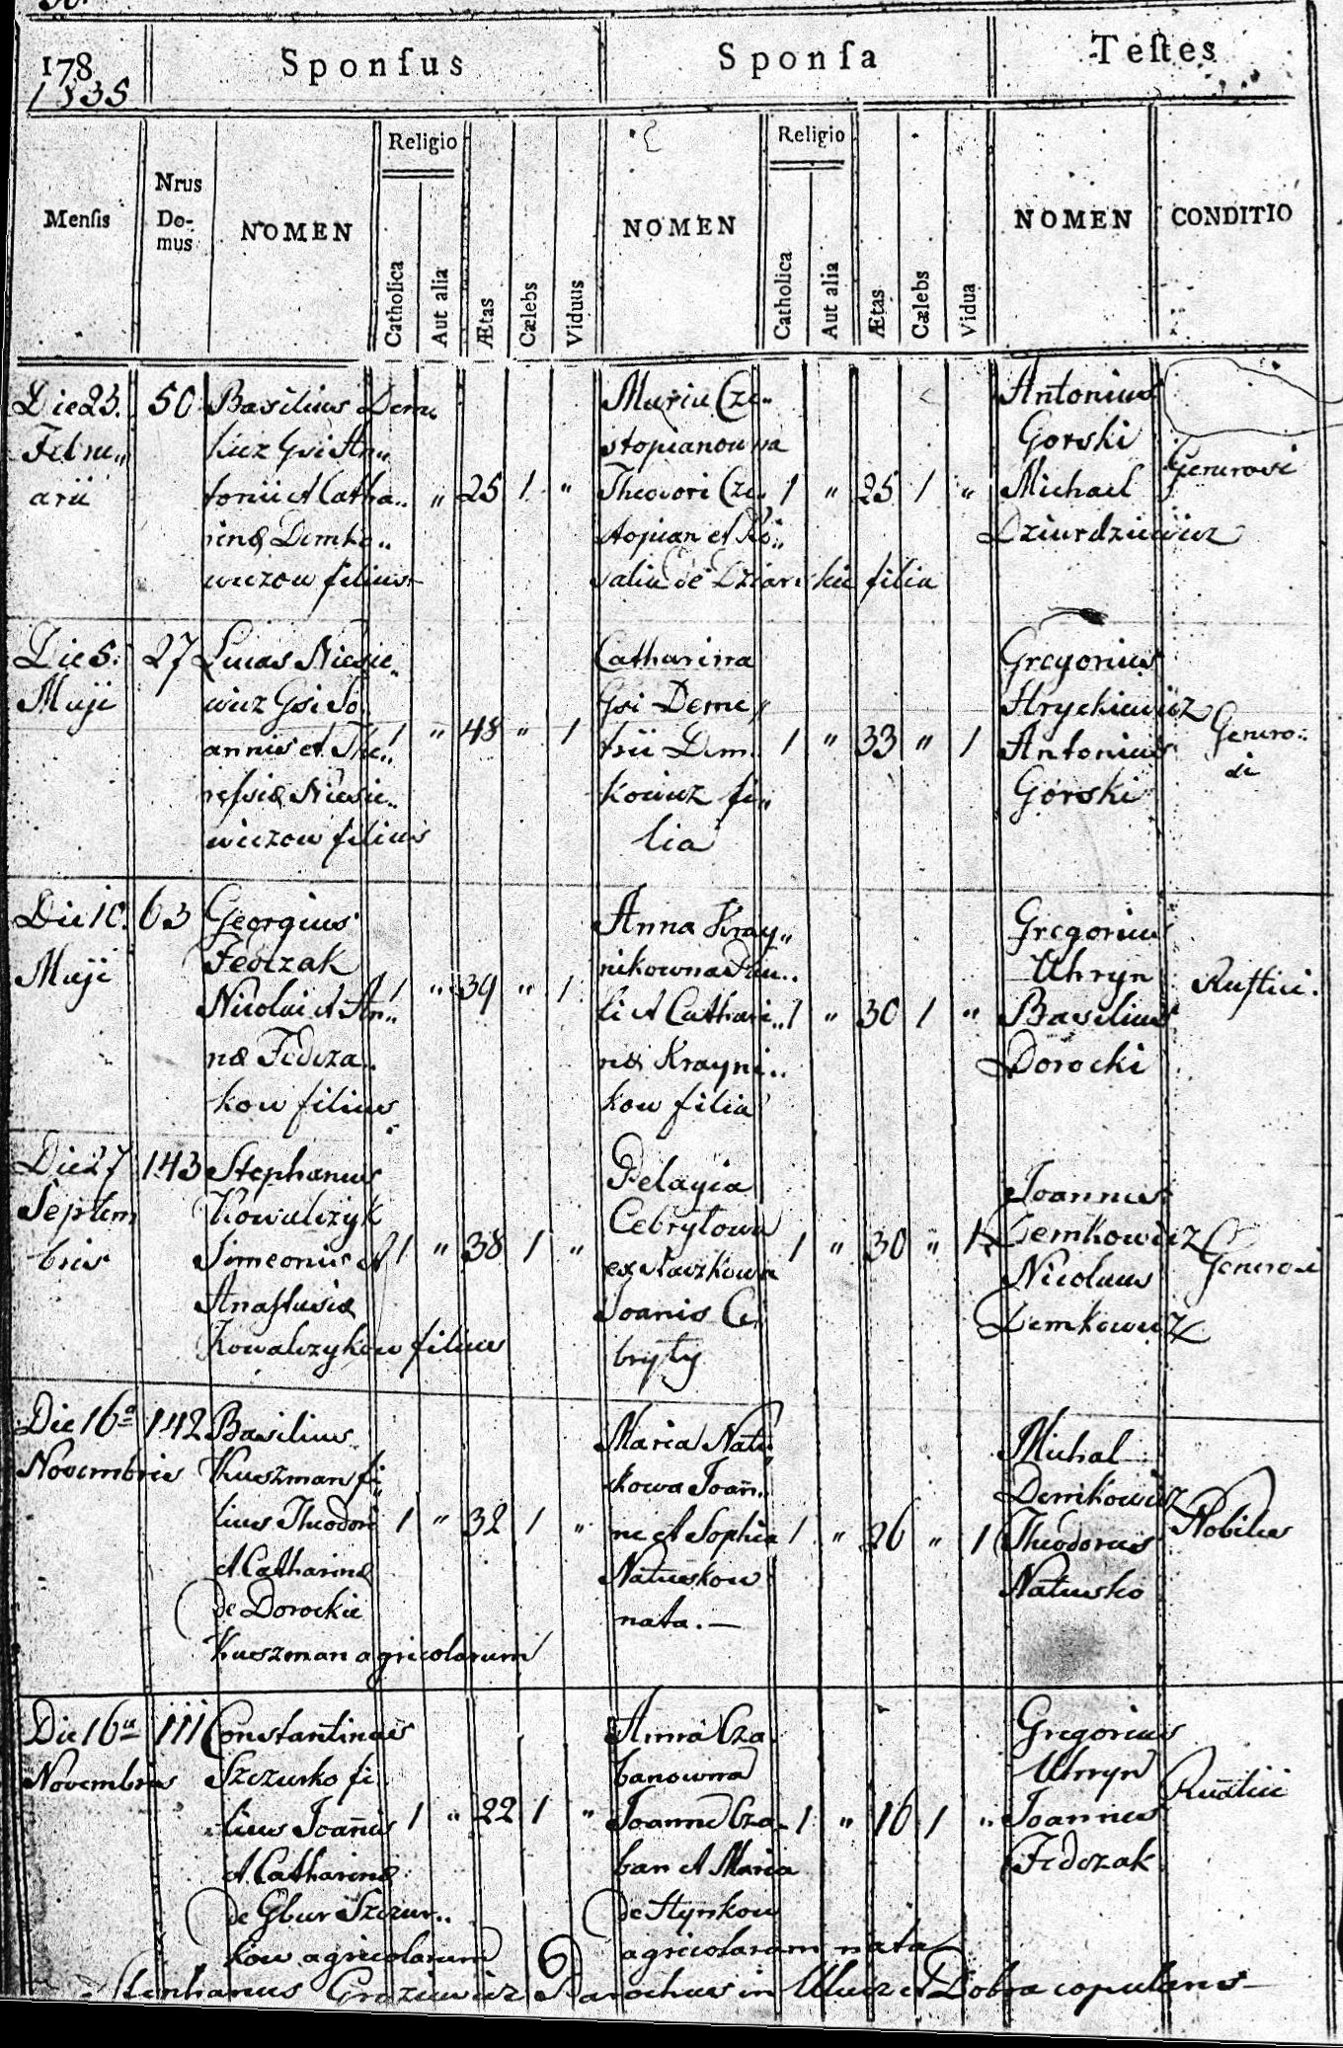 178
1835
Sponſus
Sponſa
Teſtes
Menſis
Nrus
Do-
mus
NOMEN
Religio
Catholica
Aut alia
Ætas
Cælebs
Viduus
NOMEN
Religio
Catholica
Aut alia
Ætas
Cælebs
Vidua
NOMEN
CONDITIO
Die 23. 50
Febru„
arii
Basilius Dem„
kicz Gsi An„
tonii et Catha„
rinæ Demko„
wiczow filius
„ 25 1 „
Maria Cze„
stopianowna
Theodori Cze„
stopian et Ro„
salia de Dziarskie filia
1 „ 25 1 „
Antonius
Gorski
Michael
Dziurdziewicz
Generosi
Die 5. 27
Maji
Lucas Niesie„
wicz Gsi Jo„
annis et The„
ressiæ Niesie„
wiczow filius
1 „ 48 „ 1
Catharina
Gsi Deme„
trii Dem„
kowicz fi„
lia
1 „ 33 „ 1
Gregorius
Hryckiewicz
Antonius
Gorski
Genero„
si
Die 10. 63
Maji
Georgius
Fedczak
Nicolai et An„
næ Fedcza„
kow filius
1 „ 39 „ 1
Anna Kray„
nikowna Pau„
li et Cathari„
næ Krayni„
kow filia
1 „ 30 1 „
Gregorius
Uhryn
Basilius
Dorocki
Ruſtici.
Die 27 143
Septem
bris
Stephanus
Kowalczyk
Simeonis et
Anaſtasiæ
Kowalczykow filius
1 „ 38 1 „
Pelagia
Cebrytowa
Joanis Ce„
bryty
1 „ 30 „ 1
Joannes
Demkowicz
Nicolaus
Demkowicz
Generosi
Die 16a 142
Novembris
Basilius
Kuszman fi„
lius Theodori
et Catharinæ
de Dorockie
Kuszman agricolarum
1 „ 32 1 „
Maria Natu„
skowa Joan̄„
ne et Sophia
Natuskow
nata. —
1 „ 26 „ 1
Michal
Demkowicz
Theodorus
Natusko
Nobiles
Die 16a 111
Novembris
Constantinus
Szczurko fi„
lius Joan̄is
et Catharinæ
de Gbur Szczur„
kow agricolarum
1 „ 22 1 „
Anna Cza„
banowna
Joanne Cza„
ban et Maria
de Hynkow
agricolarum nata
1 „ 16 1 „
Gregorius
Uhryn
Joannes
Fedczak
Rustici
Stephanus Groziewicz Parochus in Ulucz et Dobra copulans —